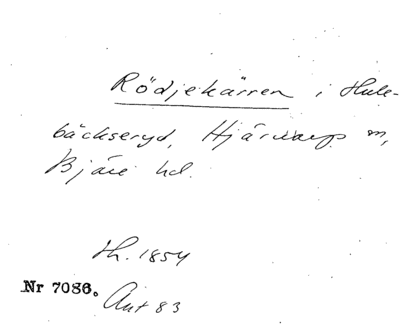 Rödjekärren i Hule-
bäckseryd, Hjärnarps sn,
Bjäre hd.
th. 1854
Nr 7086.
Ant 83